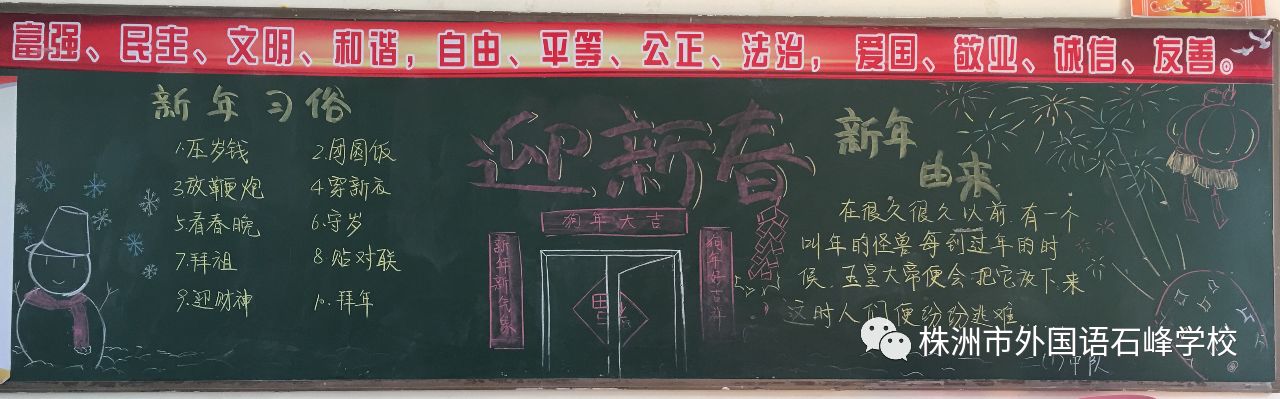 富强、民主、文明、和谐，自由、平等、公正、法治，爱国、敬业、诚信、友善。
新年习俗
1.压岁钱 2.团圆饭
3.放鞭炮 4.穿新衣
5.看春晚 6.守岁
7.拜祖 8.贴对联
9.迎财神 10.拜年
迎新春
狗年大吉
新年新气象
狗年好吉祥
新年
由来
在很久很久以前有一个
叫年的怪兽每到过年的时
候.玉皇大帝便会把它放下来
这时人们便纷纷逃难
中队
株洲市外国语石峰学校